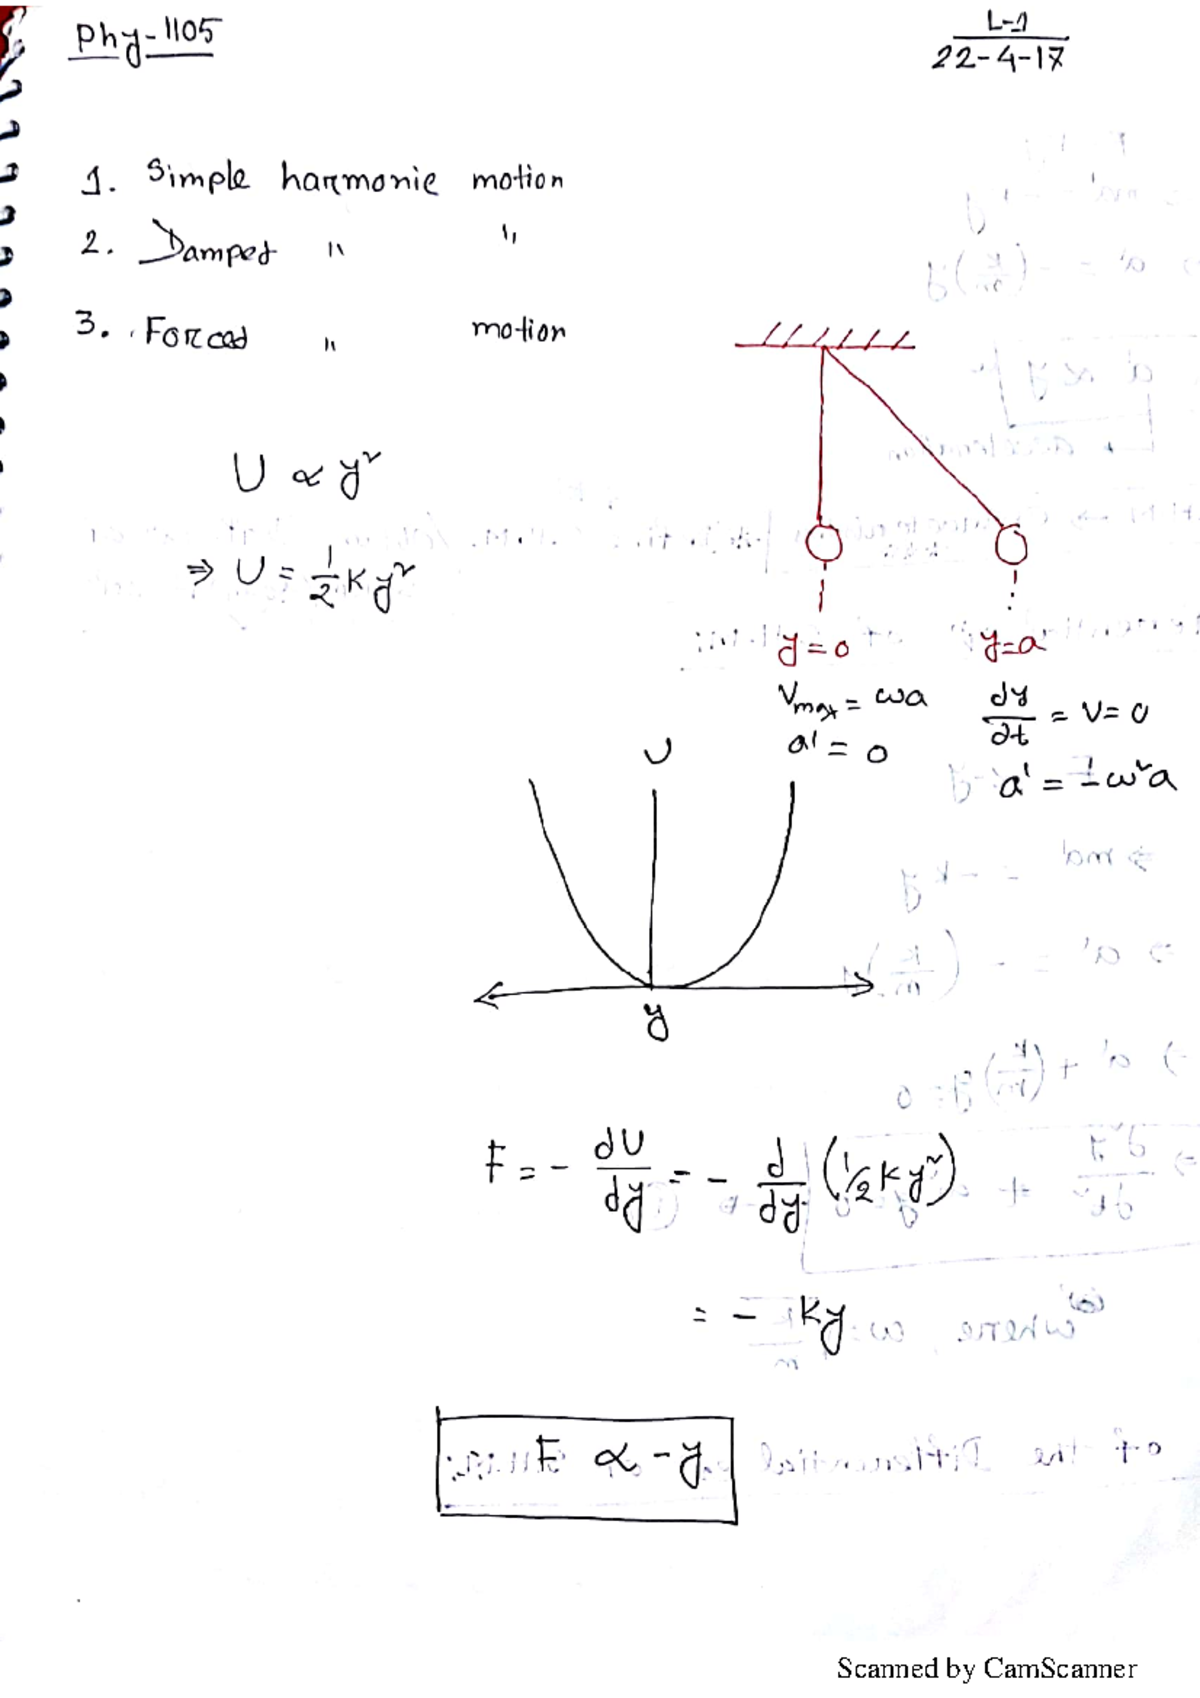 Phy-1105
L-1
22-4-17
1. Simple harmonic motion
2. Damped " "
3. Forced " motion
U ∝ y²
⇒ U = 1/2 K y²
y=0 y=a
Vmax = ωa dy/dt = V= 0
a' = 0 a' = - ω²a
U
y
F = - dU/dy = - d/dy (1/2 K y²)
= - Ky
F ∝ -y
Scanned by CamScanner